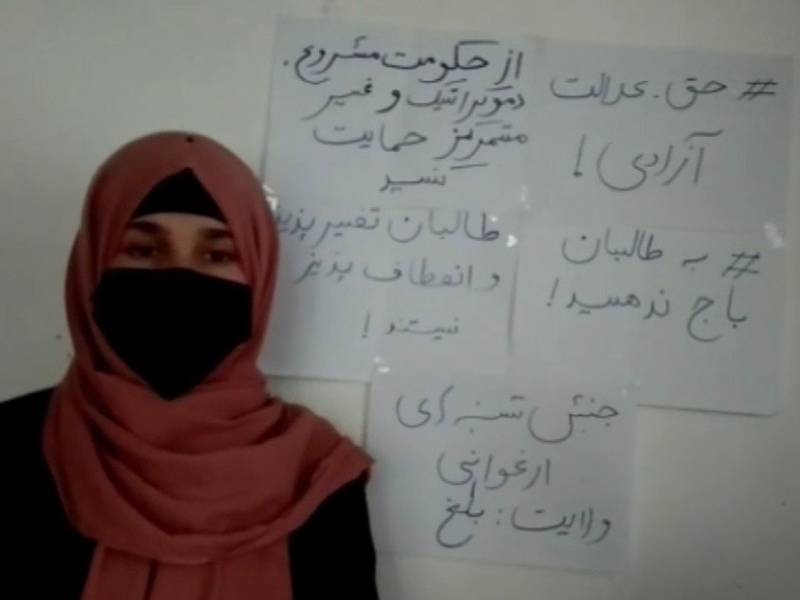 از حکومت مشروع.
دموکراتیک و غیر
متمرکز حمایت
کنید
# حق. عدالت
آزادی!
طالبان تغییر پذیر
و انعطاف پذیر
نیستند!
# به طالبان
باج ندهید!
جنبش شنبه های
ارغوانی
ولایت: بلخ